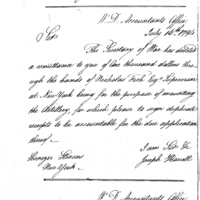 W. D. Accountants Office
July 14th 1794
Sir
The Secretary of War has directed
a remittance to you of one thousand dollars thro
ugh the hands of Nicholas Fish Esqr Supervisor
at New York being for the purpose of mounting
the Artillery, for which please to sign duplicate
receipts to be accountable for the due application
thereof
I am Sir &c
Ebenezer Stevens
Joseph Howell
New York
W. D. Accountants Office